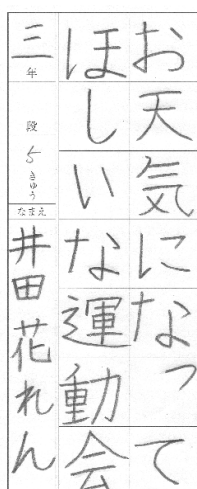 お天気になって
ほしいな運動会
三年
段5きゅう
なまえ
井田花れん